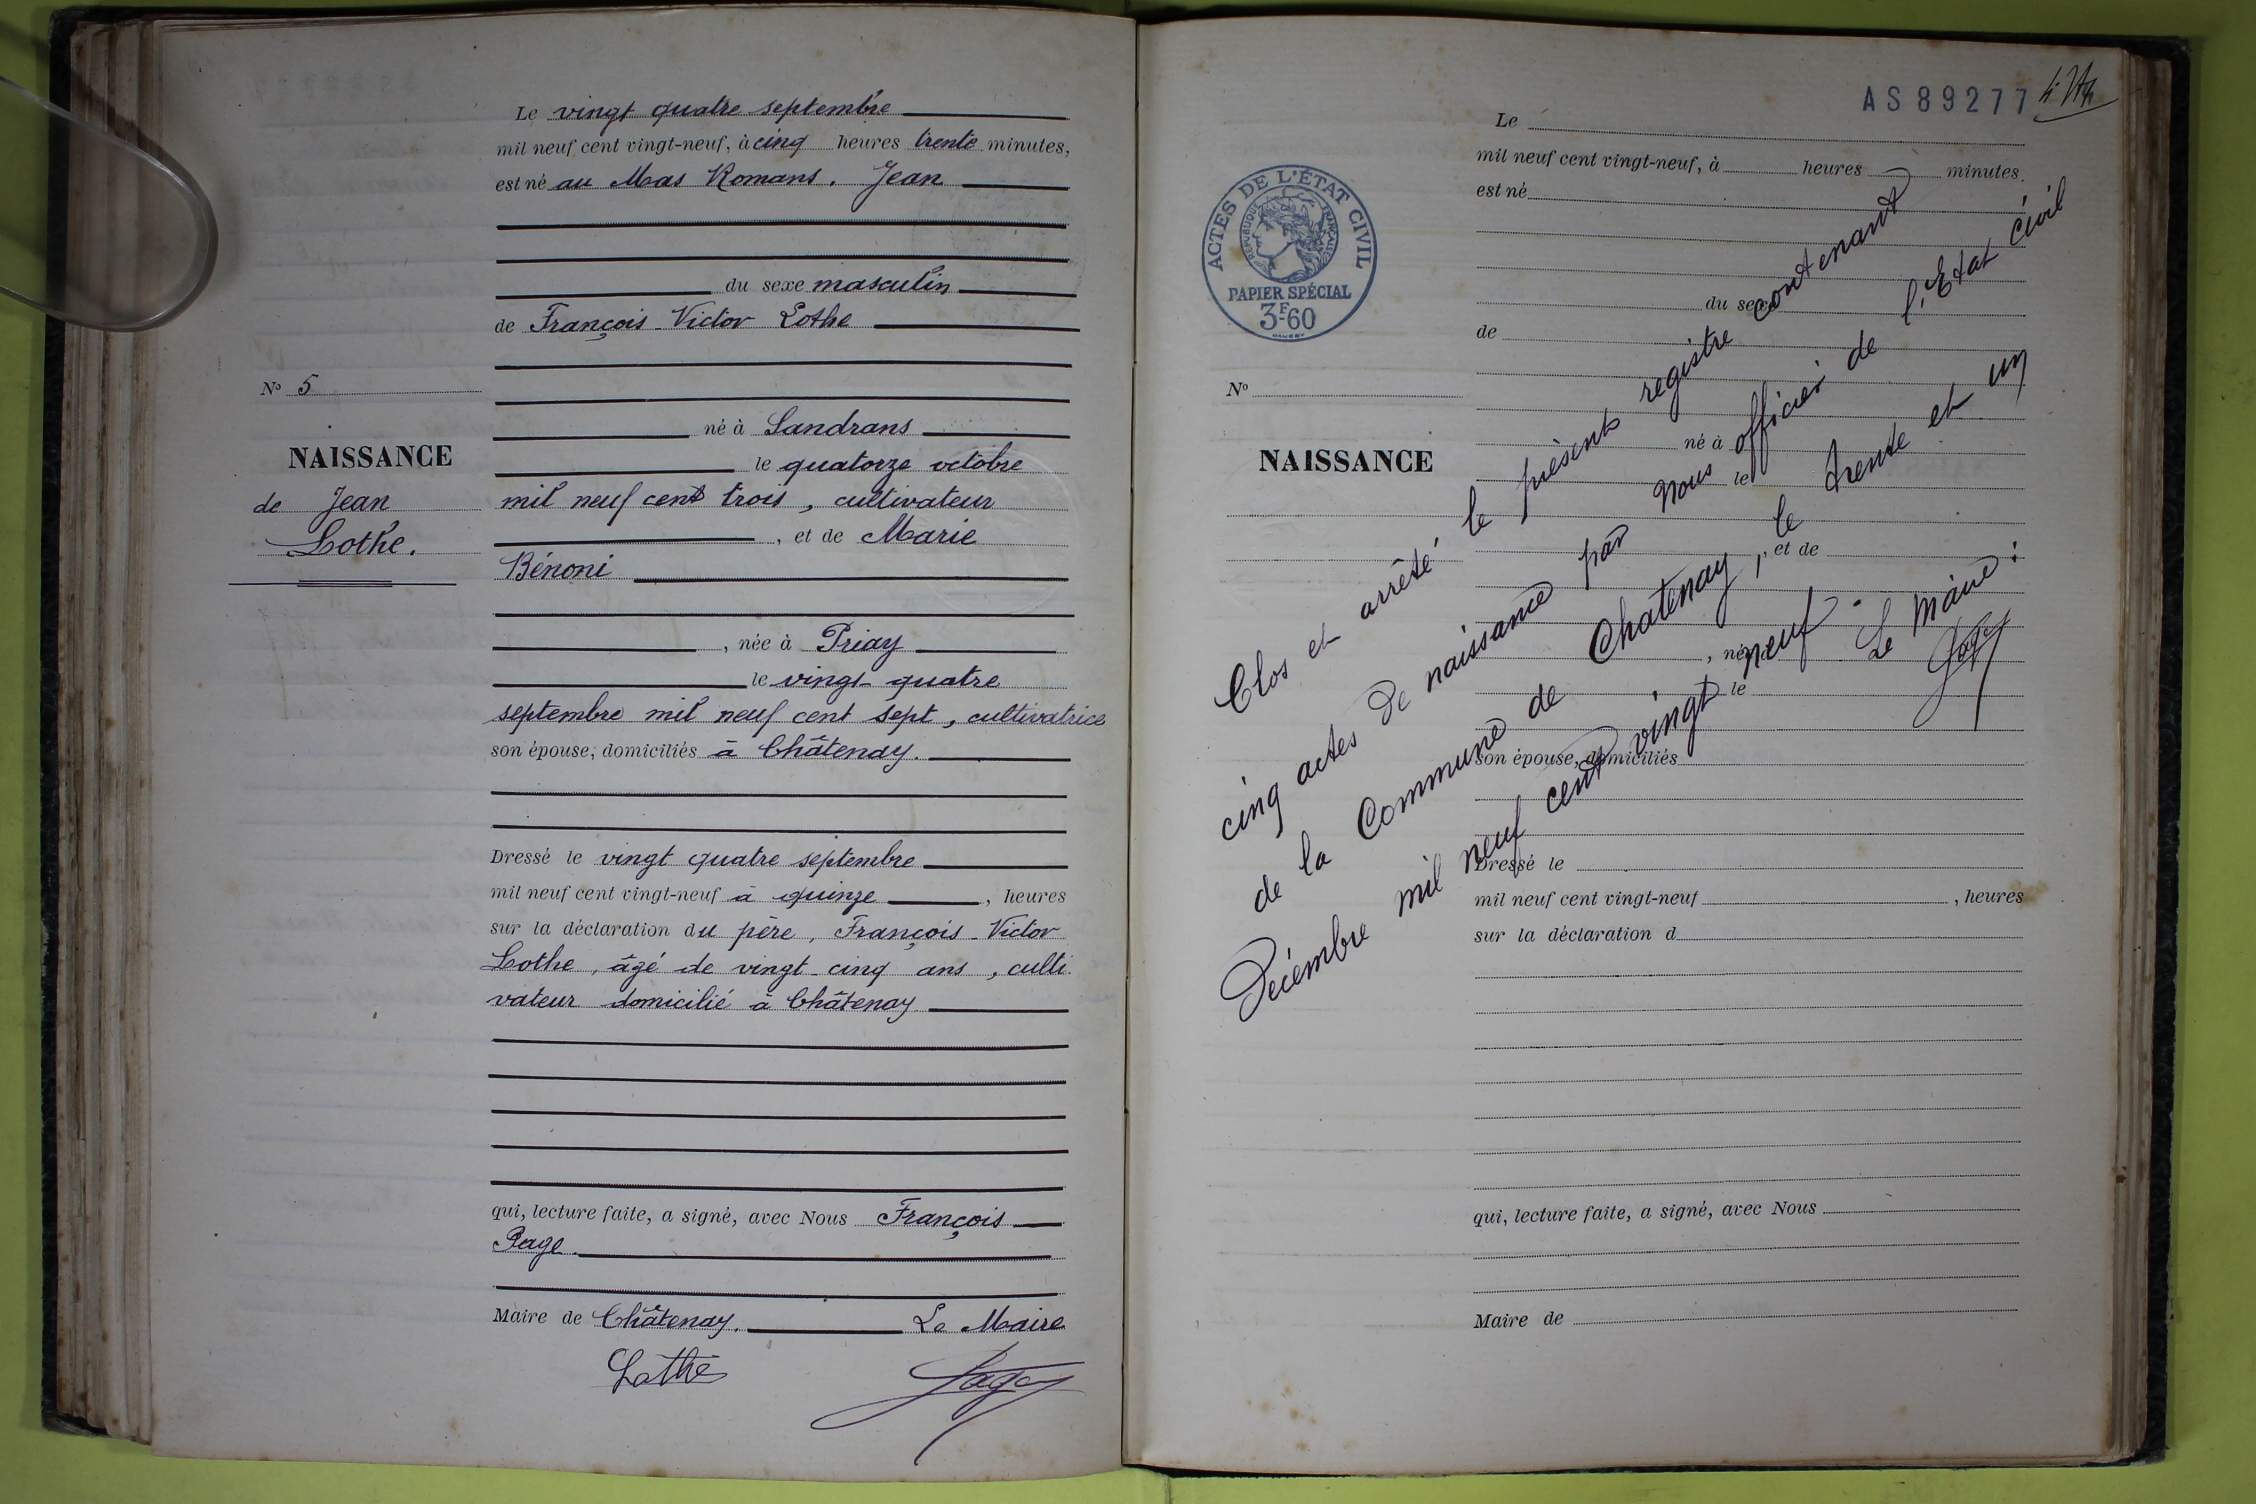 Le vingt quatre septembre
mil neuf cent vingt-neuf, à cinq heures trente minutes,
est né au Mas Romans. Jean
du sexe masculin
de François-Victor Lothe
né à Sandrans
le quatorze octobre
mil neuf cent trois, cultivateur
, et de Marie
Bénoni
, née à Priay
le vingt-quatre
septembre mil neuf cent sept, cultivatrice
son épouse, domiciliés à Châtenay.
Dressé le vingt quatre septembre
mil neuf cent vingt-neuf à quinze , heures
sur la déclaration du père, François-Victor
Lothe, âgé de vingt-cinq ans, culti-
vateur domicilié à Châtenay
qui, lecture faite, a signé, avec Nous François
Page.
Maire de Châtenay. Le Maire
Lothe
Page
No 5
NAISSANCE
de Jean
Lothe.
AS 89277
ACTES DE L'ÉTAT CIVIL
RÉPUBLIQUE FRANÇAISE
PAPIER SPÉCIAL
3F-60
No
NAISSANCE
Le
mil neuf cent vingt-neuf, à heures minutes.
est né
du sexe
de
né à
le
, et de
, née à
le
son épouse, domiciliés
Dressé le
mil neuf cent vingt-neuf , heures
sur la déclaration d
qui, lecture faite, a signé, avec Nous
Maire de
Clos et arrêté le présent registre contenant
cinq actes de naissance par nous officier de l'Etat civil
de la Commune de Chatenay, le trente et un
Décembre mil neuf cent vingt neuf. Le Maire :
Page